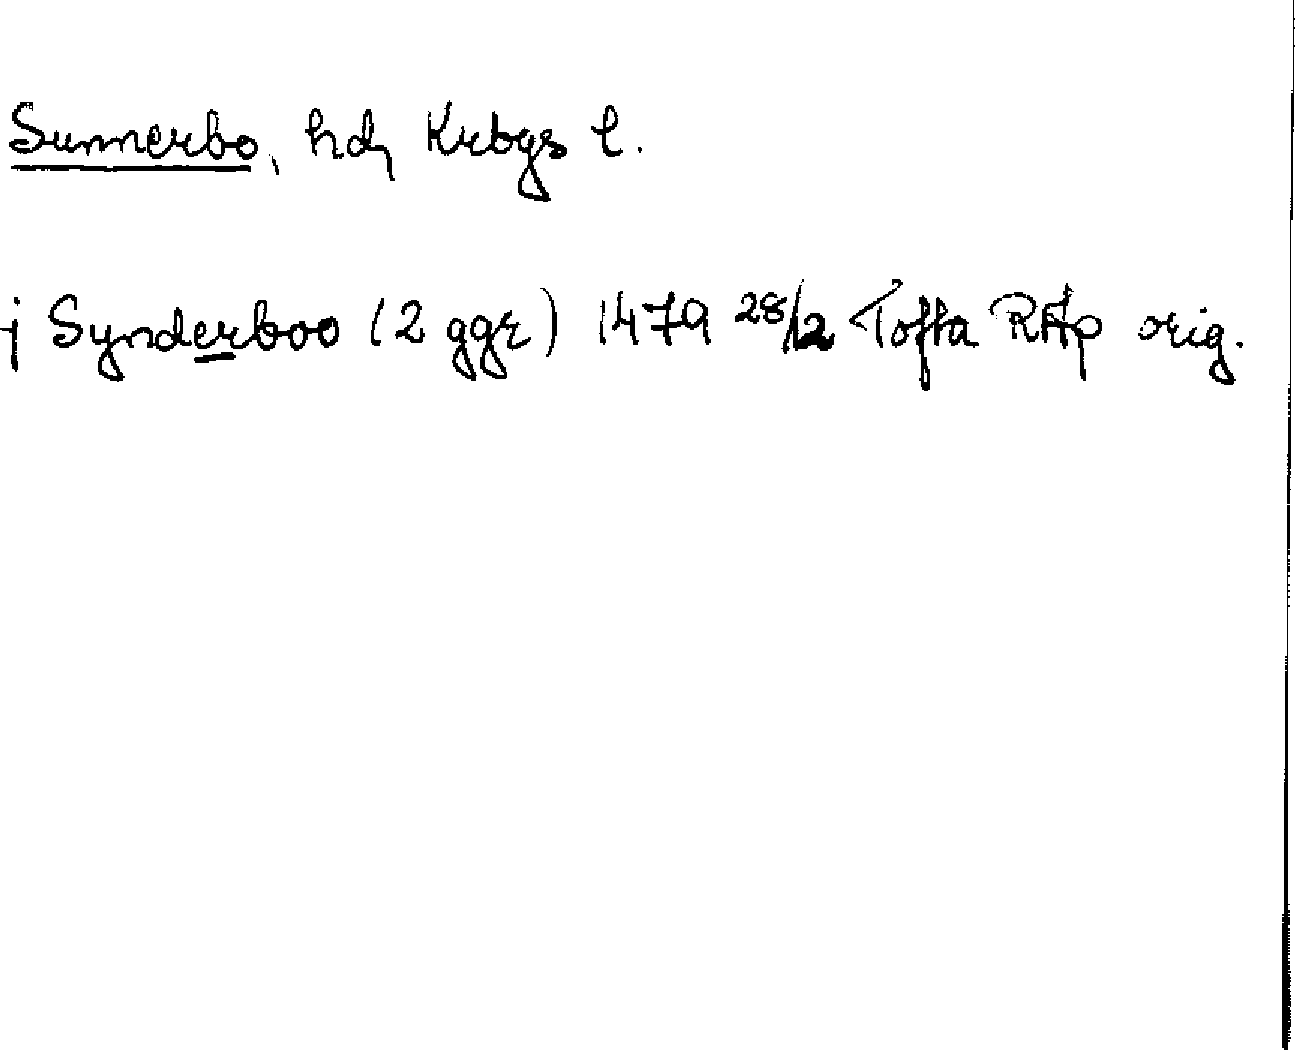 Sunnerbo, hd, Krbgs l.
j Synderboo (2 ggr) 1479 28/12 Toffta RAp orig.